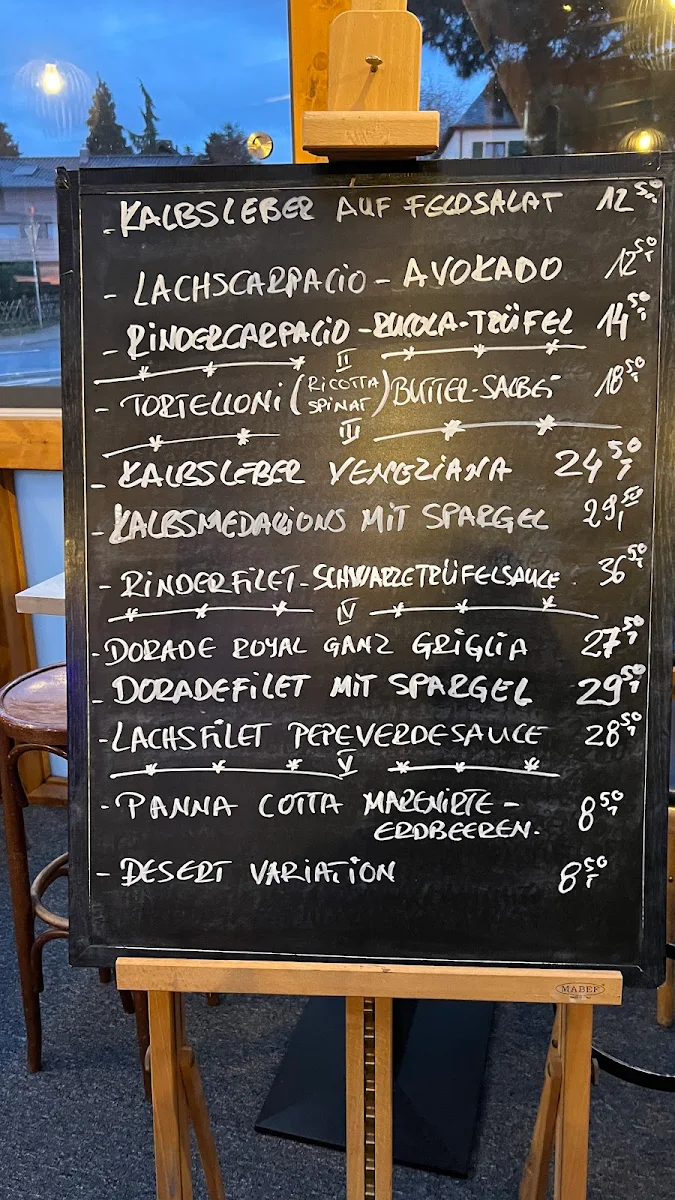 - KALBSLEBER AUF FELDSALAT 12,50
- LACHSCARPACIO - AVOKADO 12,50
- RINDERCARPACIO - RUCOLA-TRÜFEL 14,50
II
- TORTELLONI (RICOTTA SPINAT) BUTTER-SALBEI 18,50
III
- KALBSLEBER VENEZIANA 24,50
- KALBSMEDALIONS MIT SPARGEL 29,50
- RINDERFILET-SCHWARZETRÜFELSAUCE. 36,50
IV
- DORADE ROYAL GANZ GRIGLIA 27,50
- DORADEFILET MIT SPARGEL 29,50
- LACHSFILET PEPEVERDESAUCE 28,50
V
- PANNA COTTA MARENIRTE - 8,50
ERDBEEREN.
- DESERT VARIATION 8,50
MABEF